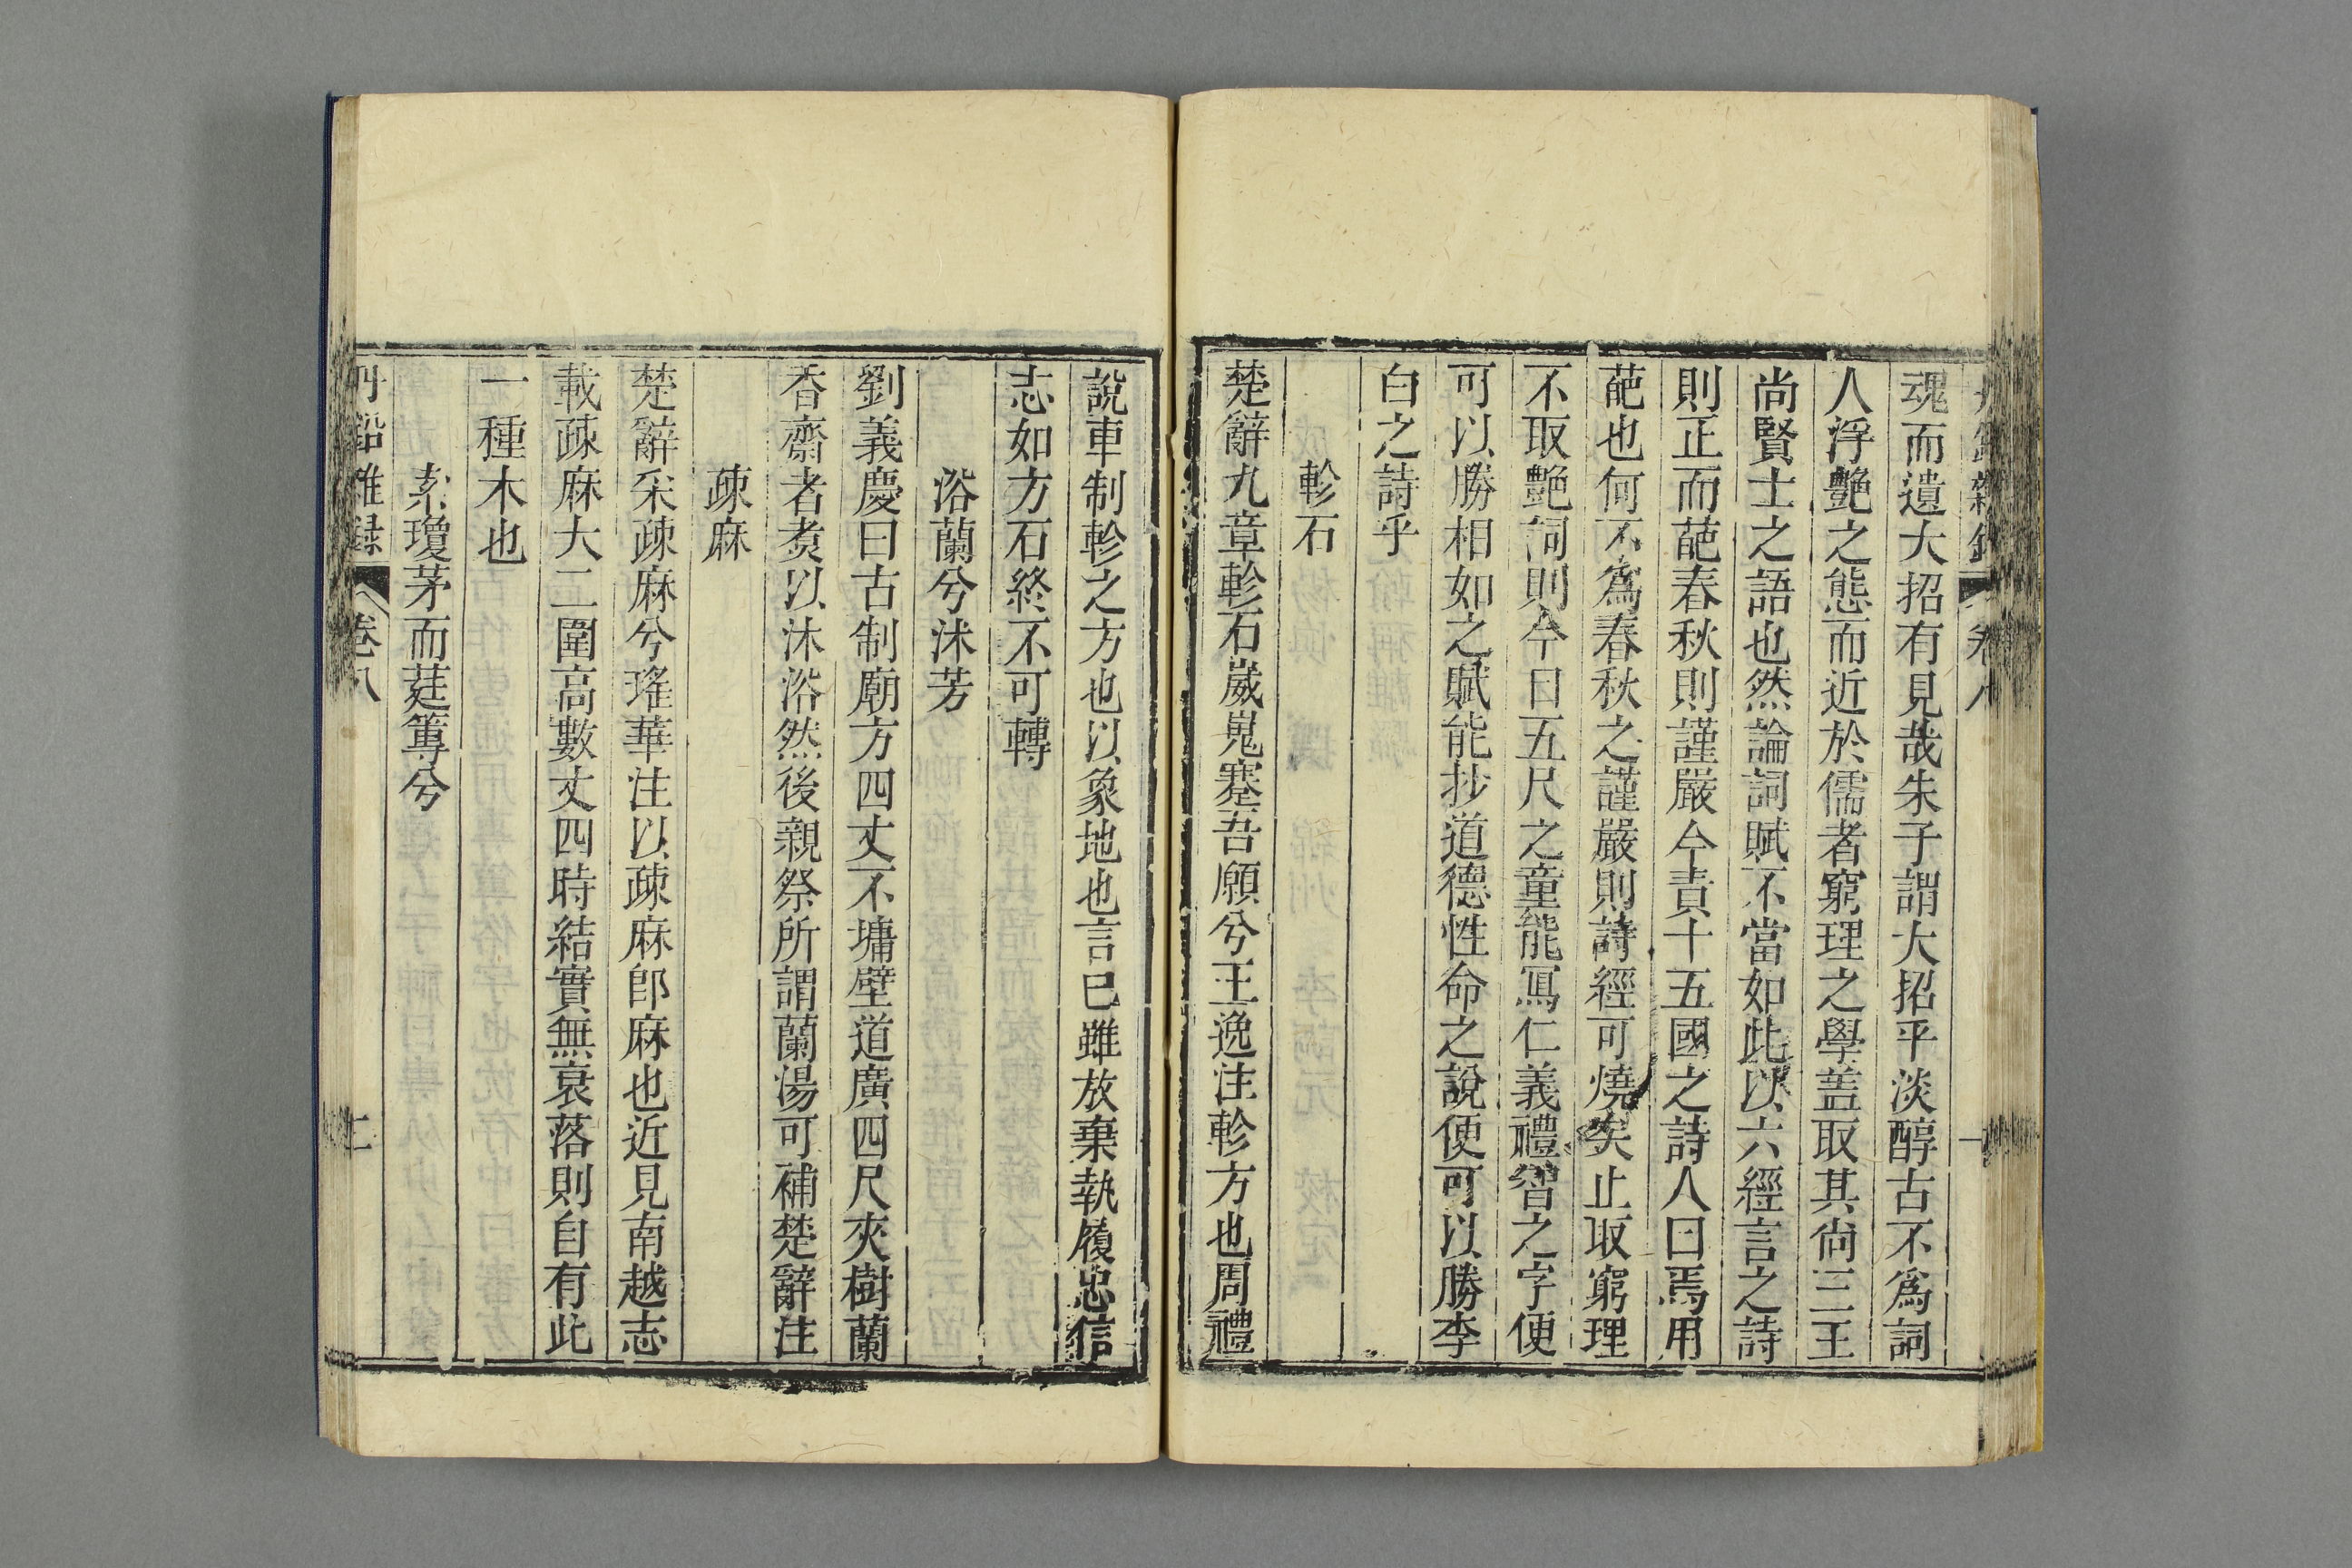 魂而遺大招有見哉朱子謂大招平淡醇古不爲詞
人浮艷之態而近於儒者窮理之學盖取其尚三王
尚賢士之語也然論詞賦不當如此以六經言之詩
則正而葩春秋則謹嚴今責十五國之詩人曰焉用
葩也何不爲春秋之謹嚴則詩經可燒矣止取窮理
不取艷詞則今日五尺之童能冩仁義禮智之字便
可以勝相如之賦能抄道德性命之說便可以勝李
白之詩乎
軫石
楚辭九章軫石崴嵬蹇吾願兮王逸注軫方也周禮
說車制軫之方也以象地也言已雖放棄執履忠信
志如方石終不可轉
浴蘭兮沐芳
劉義慶曰古制廟方四丈不墉壁道廣四尺夾樹蘭
香齋者煑以沐浴然後親祭所謂蘭湯可補楚辭注
疎麻
楚辭采疎麻兮瑤華注以疎麻卽麻也近見南越志
載疎麻大二圍高數丈四時結實無衰落則自有此
一種木也
索瓊茅而莛篿兮
丹鉛雜録 卷八 二